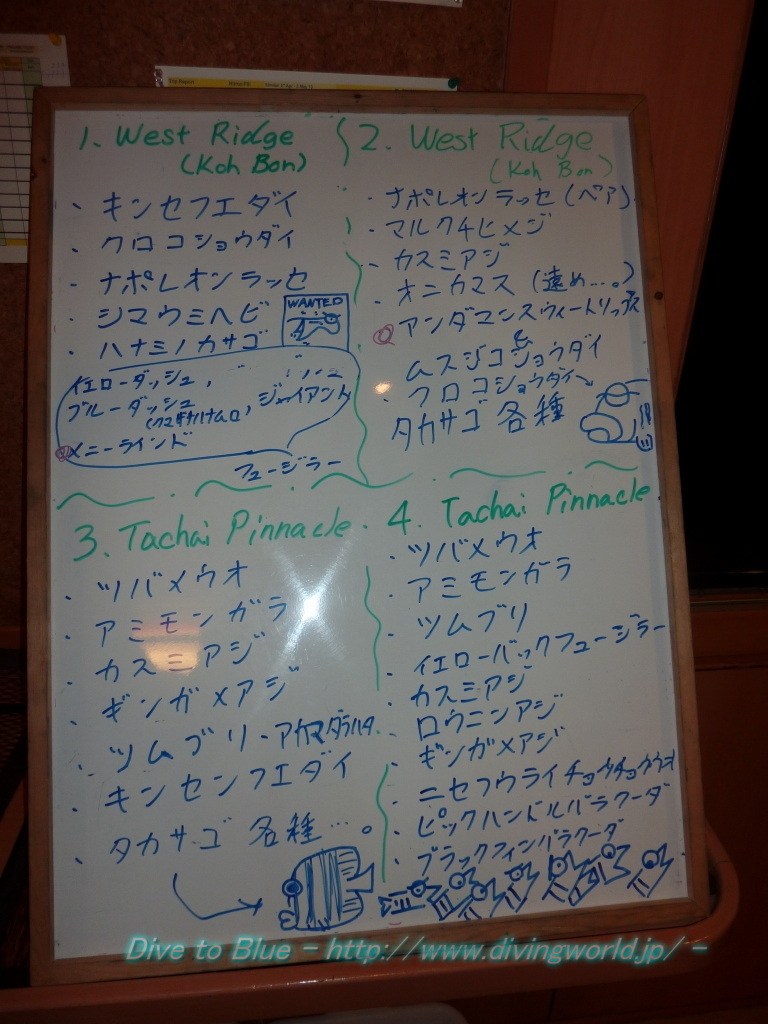 1. West Ridge
(Koh Bon)
・キンセフエダイ
・クロコショウダイ
・ナポレオンラッセ
・シマウミヘビ
・ハナミノカサゴ
WANTED
イエローダッシュ,
ブルーダッシュ
ジャイアント
メニーラインド
フュージラー
2. West Ridge
(Koh Bon)
・ナポレオンラッセ(ペア)
・マルクチヒメジ
・カスミアジ
・オニカマス(遠め...。)
・アンダマンスウィートリップス
ムスジコショウダイ
&
・クロコショウダイ
タカサゴ各種
3. Tachai Pinnacle
・ツバメウオ
・アミモンガラ
・カスミアジ
・ギンガメアジ
・ツムブリ・アカマダラハタ
・キンセンフエダイ
・タカサゴ各種...。
4. Tachai Pinnacle
・ツバメウオ
・アミモンガラ
・ツムブリ
・イエローバックフュージラー
・カスミアジ
・ロウニンアジ
・ギンガメアジ
・ニセフウライチョウチョウウオ
・ピックハンドルバラクーダ
・ブラックフィンバラクーダ
Dive to Blue - http://www.divingworld.jp/ -